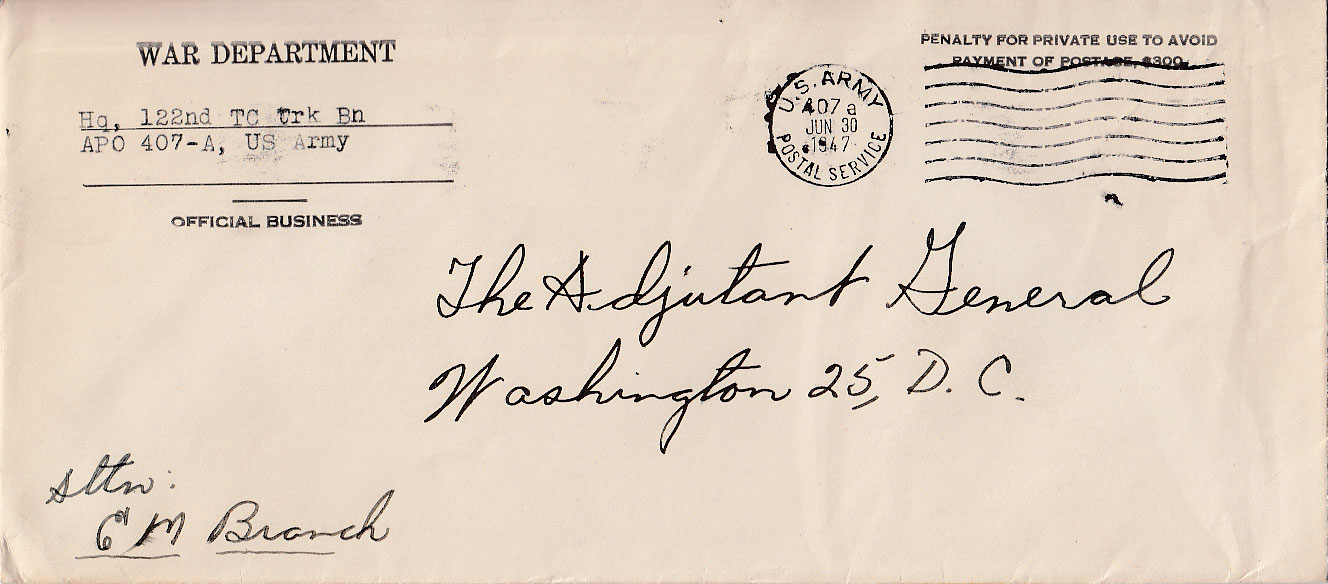 WAR DEPARTMENT
Hq, 122nd TC Trk Bn
APO 407-A, US Army
OFFICIAL BUSINESS
U.S. ARMY
407 a
JUN 30
1947
POSTAL SERVICE
PENALTY FOR PRIVATE USE TO AVOID
PAYMENT OF POSTAGE, $300.
The Adjutant General
Washington 25, D. C.
Attn:
EM Branch